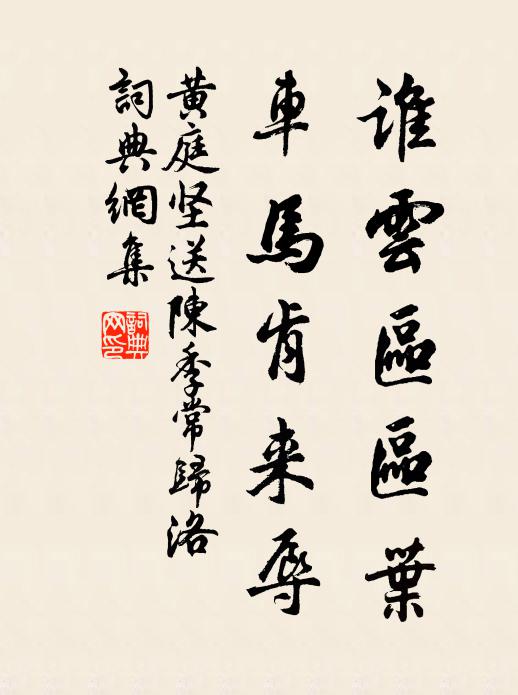 誰雲區區葉
車馬肯来辱
黄庭坚送陳季常歸洛
詞典網集
詞典網印